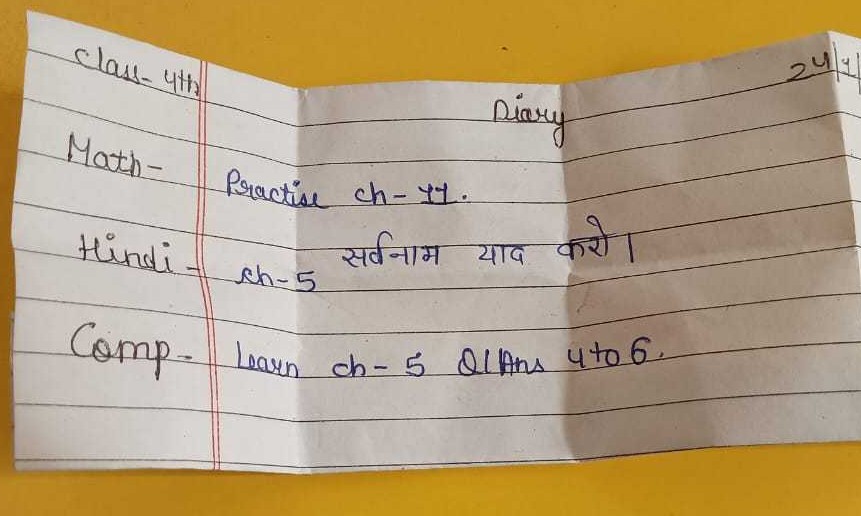 Class- 4th
Diary
24/1/
Math- Practise ch- 11.
Hindi- ch-5 सर्वनाम याद करो।
Comp- Learn ch- 5 Q/Ans 4 to 6.